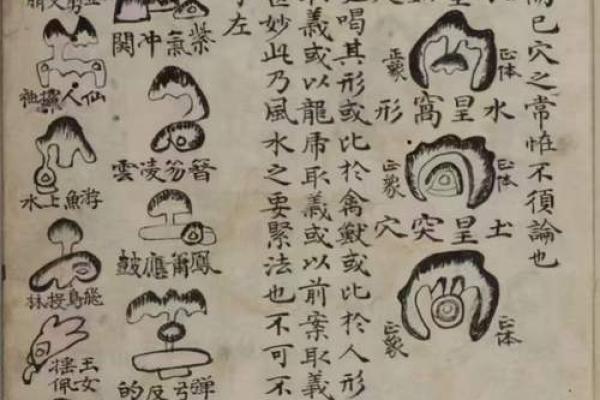 而已穴之常恠不須論也
正体
正象
水星窩形
正体
正象
土星突穴
正体
正象
喝其形或比於禽獸或比於人形
取義或以龍虎取義或以前案取義
妙此乃風水之要緊法也不可不
左
紫氣冲関
簪笏凌雲
鳳簫應皷
弾弓反的
仙人
游魚上水
飛鳥投林
玉女搖佩